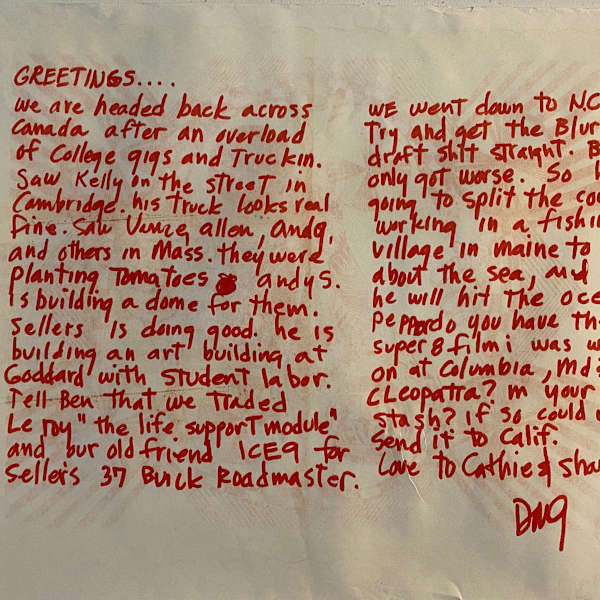 GREETINGS....
we are headed back across
Canada after an overload
of College gigs and Truckin.
Saw Kelly on the street in
Cambridge. his truck looks real
fine. Saw Vance, allen, andy,
and others in Mass. they were
planting Tomatoes andy S.
is building a dome for them.
Sellers is doing good. he is
building an art building at
Goddard with student labor.
Tell Ben that we traded
Le roy "the life support module"
and our old friend ICE9 for
Sellers 37 Buick Roadmaster.
WE went down to N.C
Try and get the Blur
draft shit straight. B
only got worse. So h
going to split the cou
working in a fishin
village in maine to
about the sea, and
he will hit the oce
Peppardo you have th
super 8 film i was w
on at Columbia, Md
CLEOpatra? in your
stash? if so could
Send it to Calif.
Love to Cathie & Sha
DMG